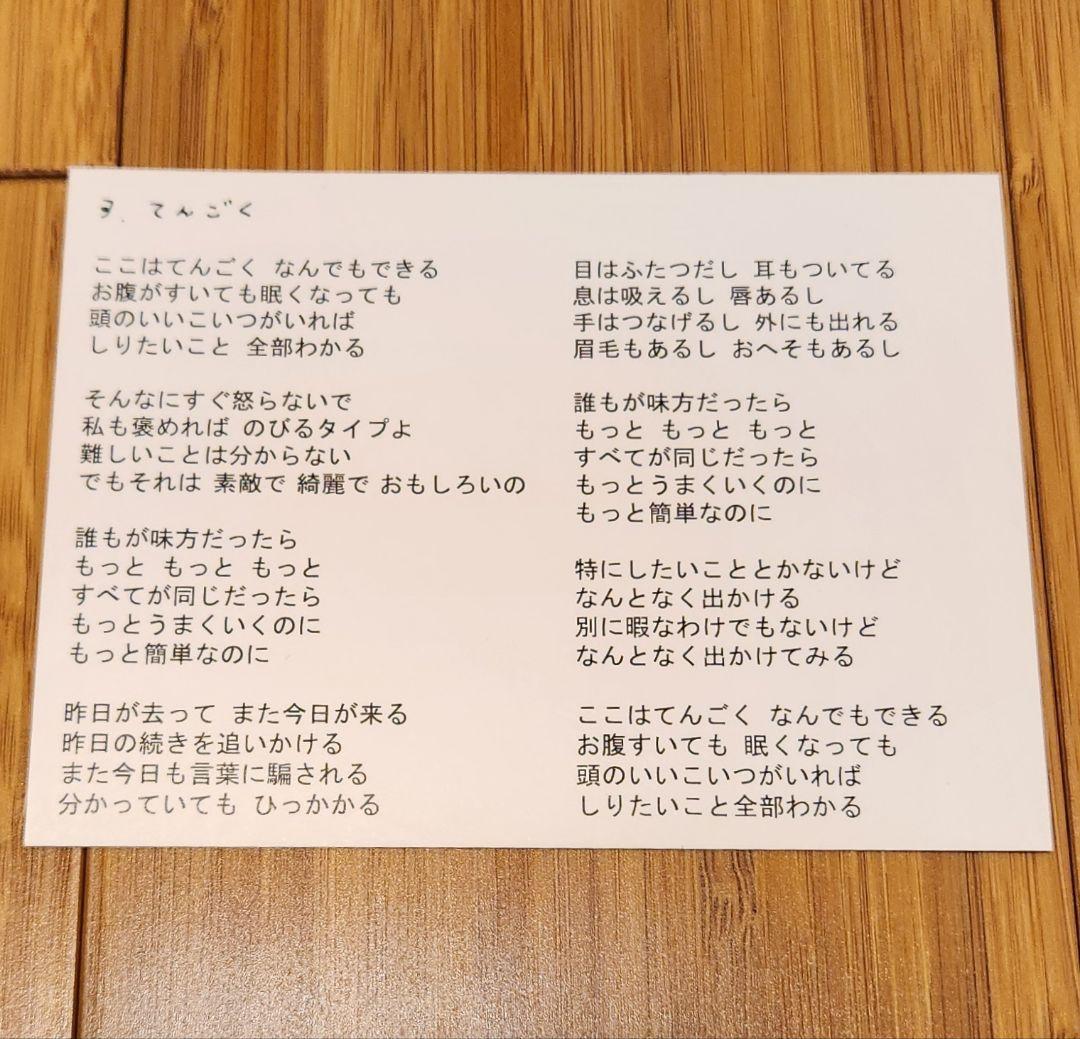 3. てんごく
ここはてんごく なんでもできる
お腹がすいても眠くなっても
頭のいいこいつがいれば
しりたいこと 全部わかる
そんなにすぐ怒らないで
私も褒めれば のびるタイプよ
難しいことは分からない
でもそれは 素敵で 綺麗で おもしろいの
誰もが味方だったら
もっと もっと もっと
すべてが同じだったら
もっとうまくいくのに
もっと簡単なのに
昨日が去って また今日が来る
昨日の続きを追いかける
また今日も言葉に騙される
分かっていても ひっかかる
目はふたつだし 耳もついてる
息は吸えるし 唇あるし
手はつなげるし 外にも出れる
眉毛もあるし おへそもあるし
誰もが味方だったら
もっと もっと もっと
すべてが同じだったら
もっとうまくいくのに
もっと簡単なのに
特にしたいこととかないけど
なんとなく出かける
別に暇なわけでもないけど
なんとなく出かけてみる
ここはてんごく なんでもできる
お腹すいても 眠くなっても
頭のいいこいつがいれば
しりたいこと全部わかる